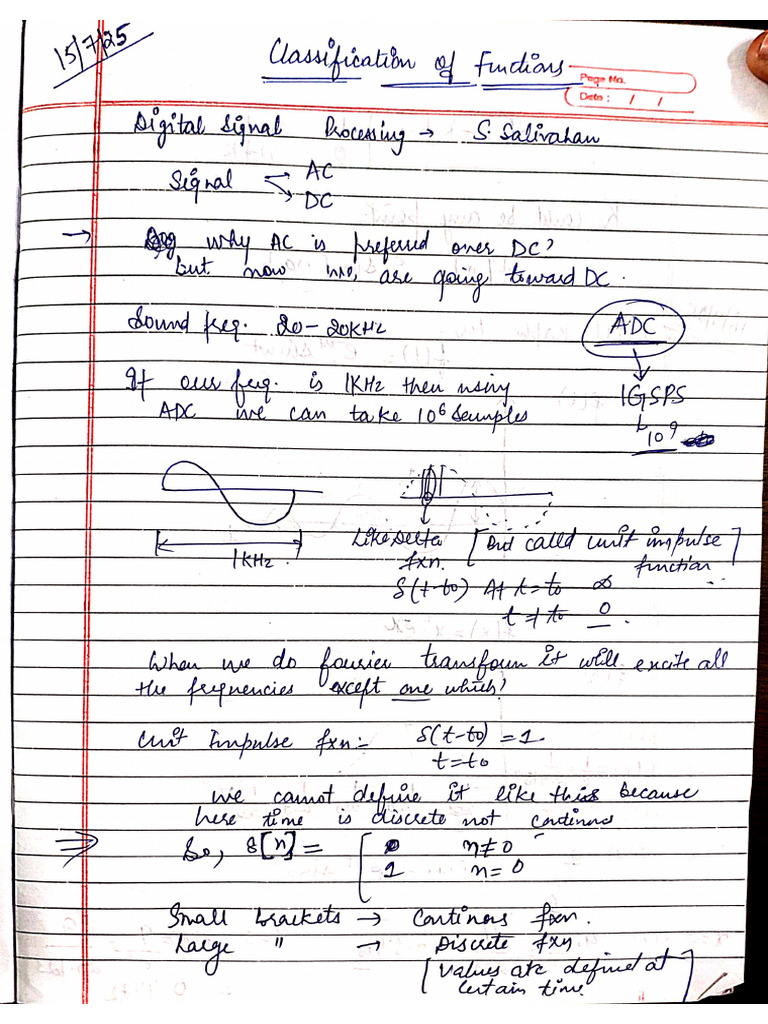 15/7/25
Classification of Functions
Page No.
Date: / /
Digital Signal Processing → S. Salivahan
Signal → AC
→ DC
→ why AC is preferred over DC?
but now we, are going toward DC.
Sound freq. 20 - 20KHz
ADC
If our freq. is 1KHz then using
1GSPS
ADC we can take 10⁶ Samples
10⁹
1KHz
Like Delta fxn.
[But called unit impulse function]
δ(t-to) At t=to ∞
t≠to 0
When we do fourier transfoum it will excite all
the frequencies except one which?
Unit Impulse fxn:- δ(t-to) = 1.
t=to
we cannot define it like this because
here time is discrete not continous
⇒ So, δ[n] = { 0 n≠0
1 n=0
Small brackets → Continous fxn.
Large " → Discrete fxn
[Values are defined at
certain time.]